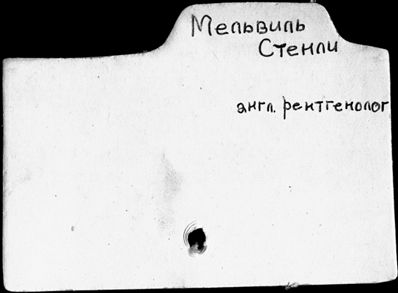 Мельвиль
Стенли
англ. рентгенолог